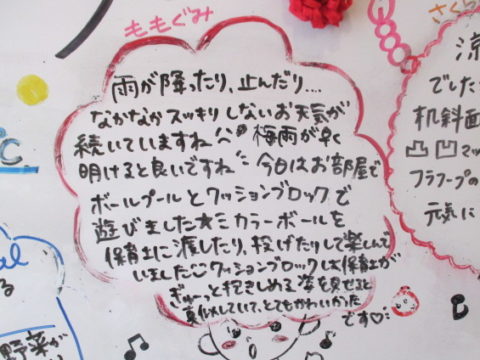 ももぐみ
雨が降ったり、止んだり....
なかなかスッキリしないお天気が
続いていますね^^; 梅雨が早く
明けると良いですね 今日はお部屋で
ボールプールとクッションブロックで
遊びました★ミカラーボールを
保育士に渡したり、投げたりして楽しんで
いました クッションブロックは保育士が
ぎゅーっと抱きしめる姿を見せると
真似していて、とてもかわいかった
です♡
さくら
涼
でした
机斜面
凸凹マッ
フラフープの
元気に
℃
al
る
野菜が